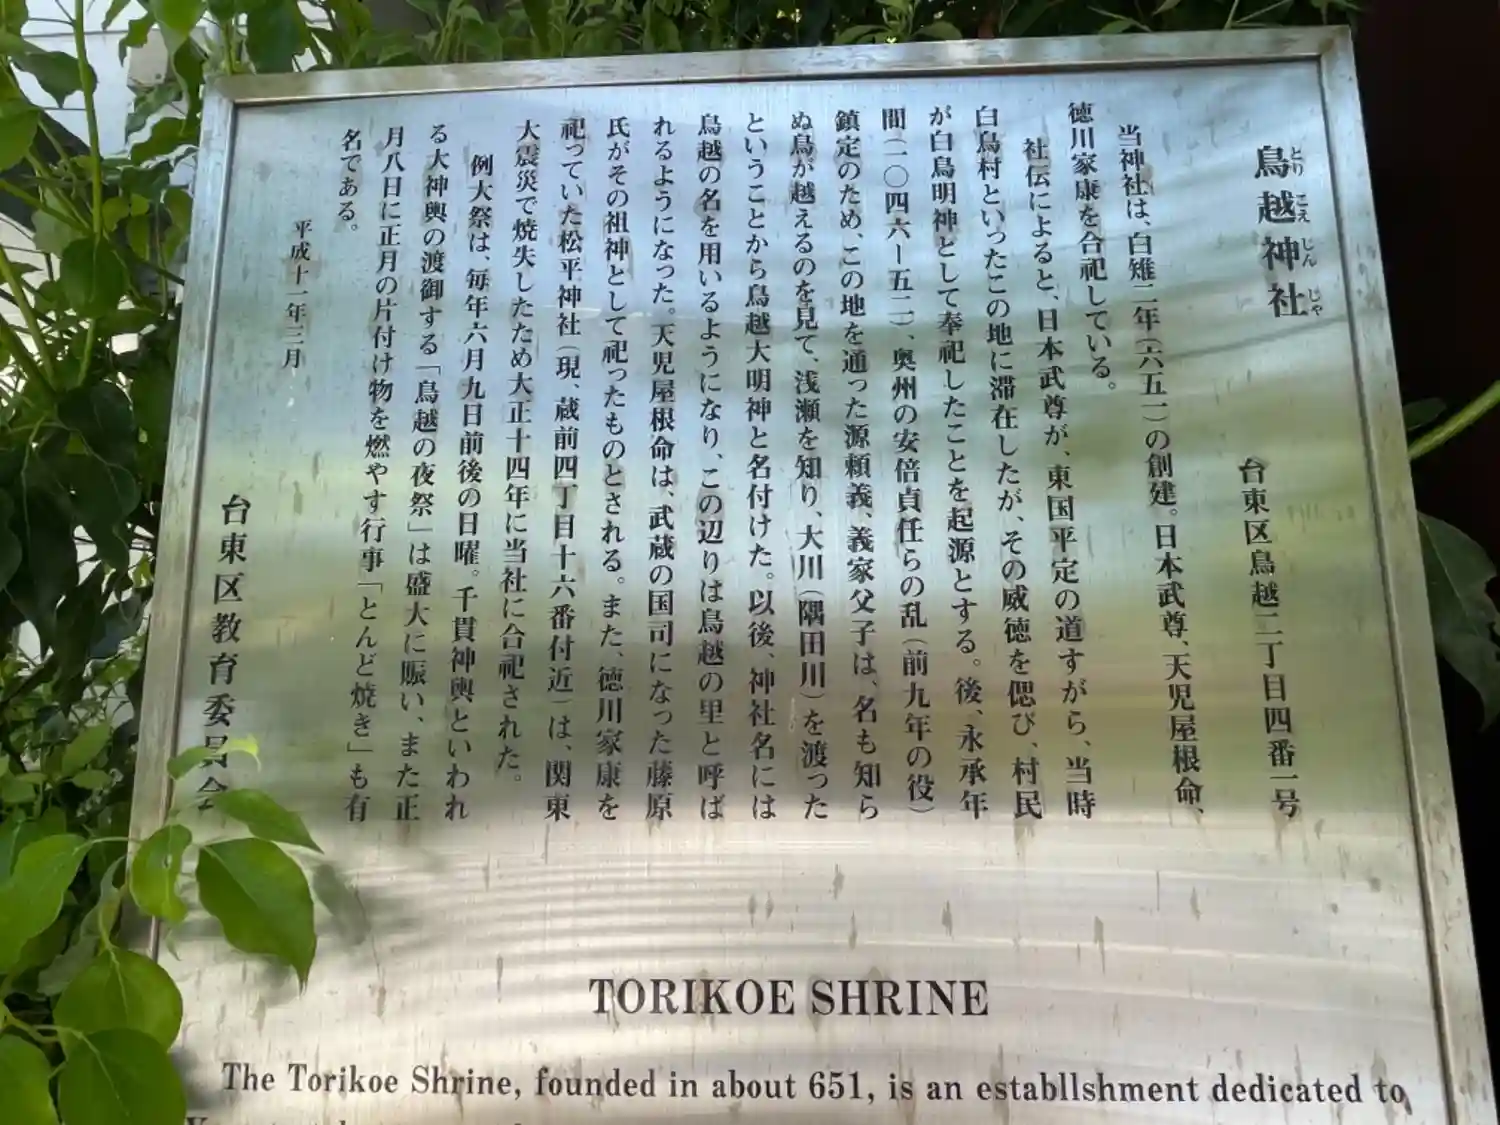 鳥越神社
とりこえしんじゃ
台東区鳥越二丁目四番一号
当神社は、白雉二年(六五一)の創建。日本武尊、天児屋根命、
徳川家康を合祀している。
社伝によると、日本武尊が、東国平定の道すがら、当時
白鳥村といったこの地に滞在したが、その威徳を偲び、村民
が白鳥明神として奉祀したことを起源とする。後、永承年
間(一〇四六ー五二)、奥州の安倍貞任らの乱(前九年の役)
鎮定のため、この地を通った源頼義、義家父子は、名も知ら
ぬ鳥が越えるのを見て、浅瀬を知り、大川(隅田川)を渡った
ということから鳥越大明神と名付けた。以後、神社名には
鳥越の名を用いるようになり、この辺りは鳥越の里と呼ば
れるようになった。天児屋根命は、武蔵の国司になった藤原
氏がその祖神として祀ったものとされる。また、徳川家康を
祀っていた松平神社(現、蔵前四丁目十六番付近)は、関東
大震災で焼失したため大正十四年に当社に合祀された。
例大祭は、毎年六月九日前後の日曜。千貫神輿といわれ
る大神輿の渡御する「鳥越の夜祭」は盛大に賑い、また正
月八日に正月の片付け物を燃やす行事「とんど焼き」も有
名である。
平成十一年三月
台東区教育委員会
TORIKOE SHRINE
The Torikoe Shrine, founded in about 651, is an establlshment dedicated to